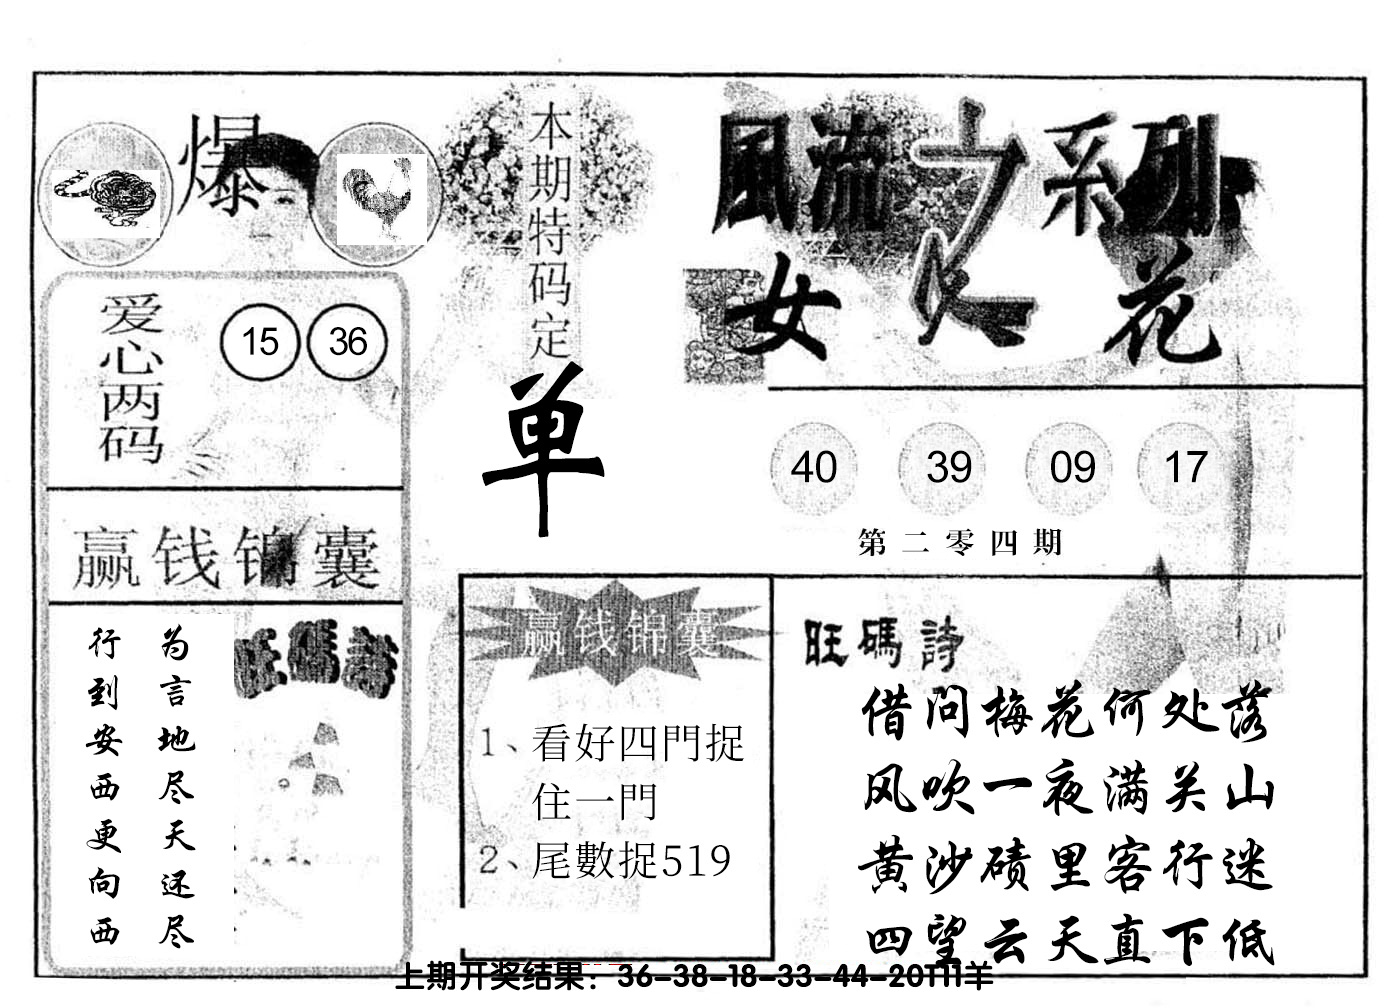 爆
本期特码定
单
風流之系列
女人花
爱心两码
15 36
40 39 09 17
第二零四期
赢钱锦囊
旺碼詩
为言地尽天还尽
行到安西更向西
赢钱锦囊
1、看好四門捉
住一門
2、尾數捉519
旺碼詩
借问梅花何处落
风吹一夜满关山
黄沙碛里客行迷
四望云天直下低
上期开奖结果：36-38-18-33-44-20T11羊